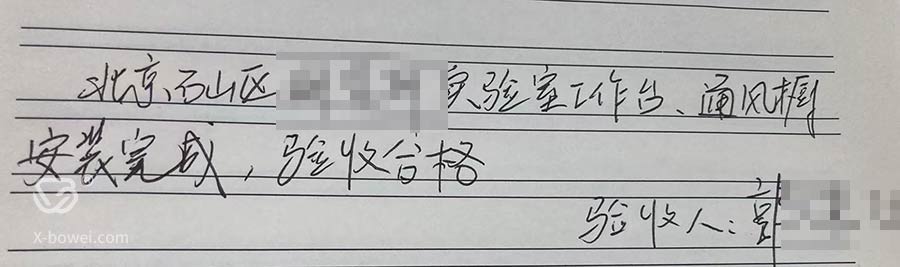 北京石山区 实验室工作台、通风橱
安装完成，验收合格
验收人：
X-bowei.com